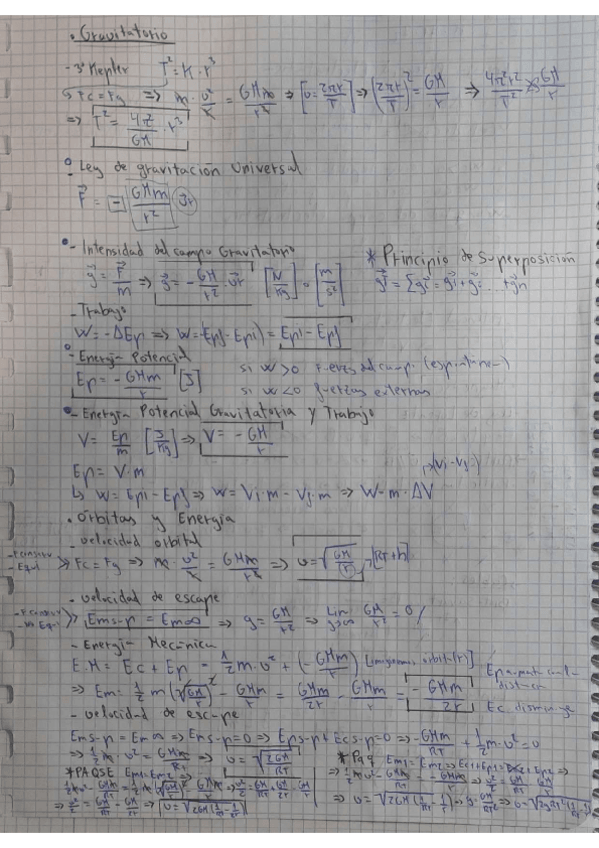 · Gravitatorio
- 3ª Kepler T² = K · r³
Fc = Fg => m · v²/r = GMm/r² => [v = 2πr/T] => (2πr/T)² = GM/r => 4π²r²/T² = GM/r
=> T² = 4π²/GM · r³
Ley de gravitación Universal
F = - GMm/r² ur
- Intensidad del campo Gravitatorio
g = F/m => g = - GM/r² · ur [N/Kg] = [m/s²]
* Principio de Superposición
gT = Σgi = g1 + g2 ... + gn
- Trabajo
W = -ΔEp => W = -(Epf - Epi) = Epi - Epf
- Energía Potencial
Ep = - GMm/r [J]
si W > 0 fuerzas del campo (espontáneo)
si W < 0 fuerzas externas
- Energía Potencial Gravitatoria y Trabajo
V = Ep/m [J/Kg] => V = - GM/r
Ep = V · m
↳ W = Epi - Epf => W = Vi · m - Vf · m => W = m · ΔV
→(Vi - Vf)
· Órbitas y Energía
- velocidad orbital
Fc = Fg => m · v²/r = GMm/r² => v = √(GM/r) → [RT + h]
- velocidad de escape
Emsup = Em∞ => g = GM/r² => Lim GM/r² = 0
- Energía Mecánica
E.M = Ec + Ep = 1/2 m · v² + (- GMm/r)
=> Em = 1/2 m (√(GM/r))² - GMm/r = GMm/2r - GMm/r = - GMm/2r
Ep aumenta con la distancia
Ec disminuye
- velocidad de escape
Emsup = Em∞ => Emsup = 0 => Epsup + Ecsup = 0 => - GMm/RT + 1/2 m · v² = 0
=> 1/2 m · v² = GMm/RT => v = √(2GM/RT)
* PAQSE Em1 = Em2 =>